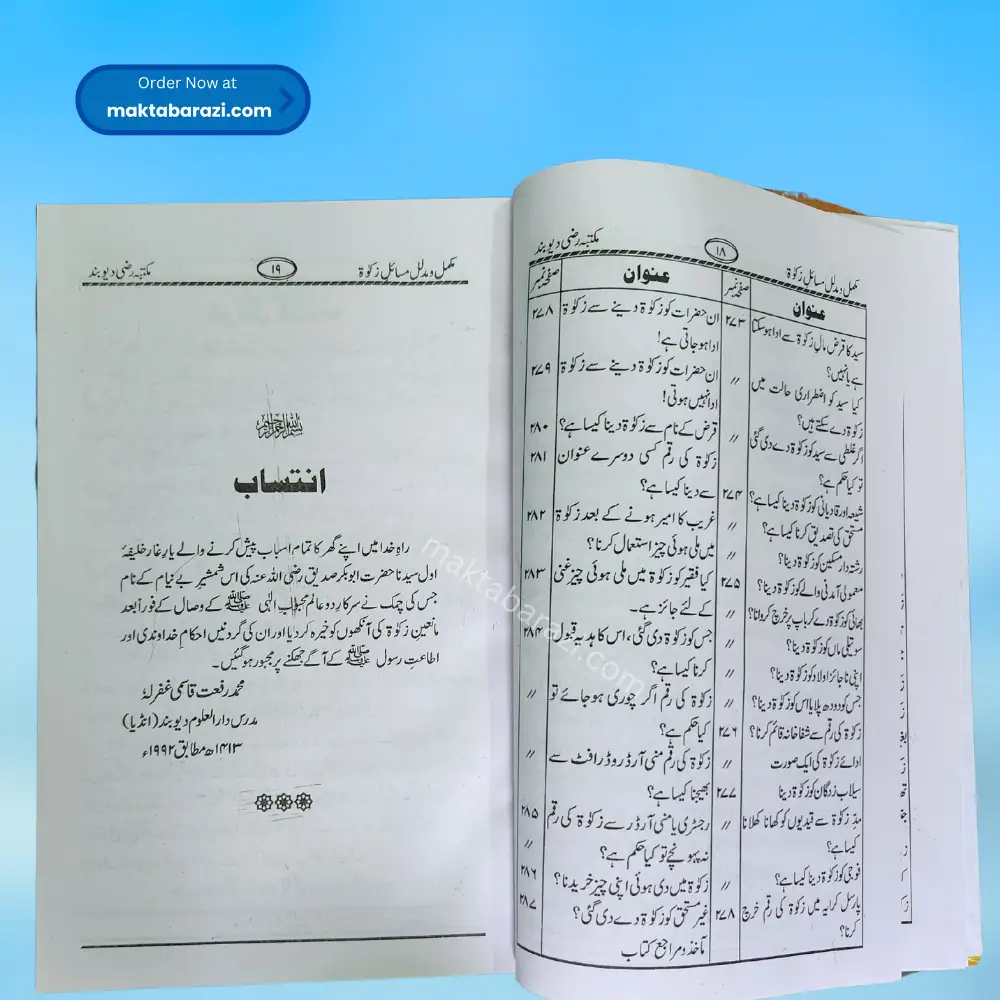 Order Now at
maktabarazi.com
مکمل و مدلل مسائل زکوٰۃ
۱۸
مکتبہ رضی دیوبند
عنوان
صفحہ نمبر
سید کا قرض مالِ زکوٰۃ سے ادا ہوسکتا
۲۷۳
ہے یا نہیں؟
کیا سید کو اضطراری حالت میں
〃
زکوٰۃ دے سکتے ہیں؟
اگر غلطی سے سید کو زکوٰۃ دے دی گئی
〃
تو کیا حکم ہے؟
شیعہ اور قادیانی کو زکوٰۃ دینا کیسا ہے؟
۲۷۴
مستحق کی تصدیق کرنا کیسا ہے؟
〃
رشتہ دار مسکین کو زکوٰۃ دینا؟
〃
معمولی آمدنی والے کو زکوٰۃ دینا؟
۲۷۵
بھائی کو زکوٰۃ دے کر باپ پر خرچ کروانا؟
〃
سوتیلی ماں کو زکوٰۃ دینا؟
〃
اپنی ناجائز اولاد کو زکوٰۃ دینا؟
〃
جس کو دودھ پلایا اس کو زکوٰۃ دینا؟
〃
زکوٰۃ کی رقم سے شفاخانہ قائم کرنا؟
۲۷۶
ادائے زکوٰۃ کی ایک صورت
〃
سیلاب زدگان کو زکوٰۃ دینا
۲۷۷
مدِ زکوٰۃ سے قیدیوں کو کھانا کھلانا
〃
کیسا ہے؟
فوجی کو زکوٰۃ دینا کیسا ہے؟
〃
پارسل کرایہ میں زکوٰۃ کی رقم خرچ
۲۷۸
کرنا؟
عنوان
صفحہ نمبر
ان حضرات کو زکوٰۃ دینے سے زکوٰۃ
۲۷۸
ادا ہوجاتی ہے!
ان حضرات کو زکوٰۃ دینے سے زکوٰۃ
۲۷۹
ادا نہیں ہوتی!
قرض کے نام سے زکوٰۃ دینا کیسا ہے؟
۲۸۰
زکوٰۃ کی رقم کسی دوسرے عنوان
۲۸۱
سے دینا کیسا ہے؟
غریب کا امیر ہونے کے بعد زکوٰۃ
۲۸۲
میں ملی ہوئی چیز استعمال کرنا؟
کیا فقیر کو زکوٰۃ میں ملی ہوئی چیز غنی
۲۸۳
کے لئے جائز ہے۔
جس کو زکوٰۃ دی گئی، اس کا ہدیہ قبول
۲۸۴
کرنا کیسا ہے؟
زکوٰۃ کی رقم اگر چوری ہوجائے تو
〃
کیا حکم ہے؟
زکوٰۃ کی رقم منی آرڈر و ڈرافٹ سے
〃
بھیجنا کیسا ہے؟
رجسٹری یا منی آرڈر سے زکوٰۃ کی رقم
۲۸۵
نہ پہونچے تو کیا حکم ہے؟
〃
زکوٰۃ میں دی ہوئی اپنی چیز خریدنا؟
۲۸۶
غیر مستحق کو زکوٰۃ دے دی گئی؟
۲۸۷
مآخذ و مراجع کتاب
مکمل و مدلل مسائل زکوٰۃ
۱۹
مکتبہ رضی دیوبند
بسم اللہ الرحمن الرحیم
انتساب
راہِ خدا میں اپنے گھر کا تمام اسباب پیش کرنے والے یارِ غار خلیفۂ
اول سیدنا حضرت ابوبکر صدیق رضی اللہ عنہ کی اس شمشیرِ بے نیام کے نام
جس کی چمک نے سرکارِ دو عالم محبوبِ الٰہی ﷺ کے وصال کے فوراً بعد
مانعینِ زکوٰۃ کی آنکھوں کو خیرہ کردیا اور ان کی گردنیں احکامِ خداوندی اور
اطاعتِ رسول ﷺ کے آگے جھکنے پر مجبور ہوگئیں۔
محمد رفعت قاسمی غفرلہٗ
مدرس دارالعلوم دیوبند (انڈیا)
۱۴۱۳ھ مطابق ۱۹۹۲ء
maktabarazi.com